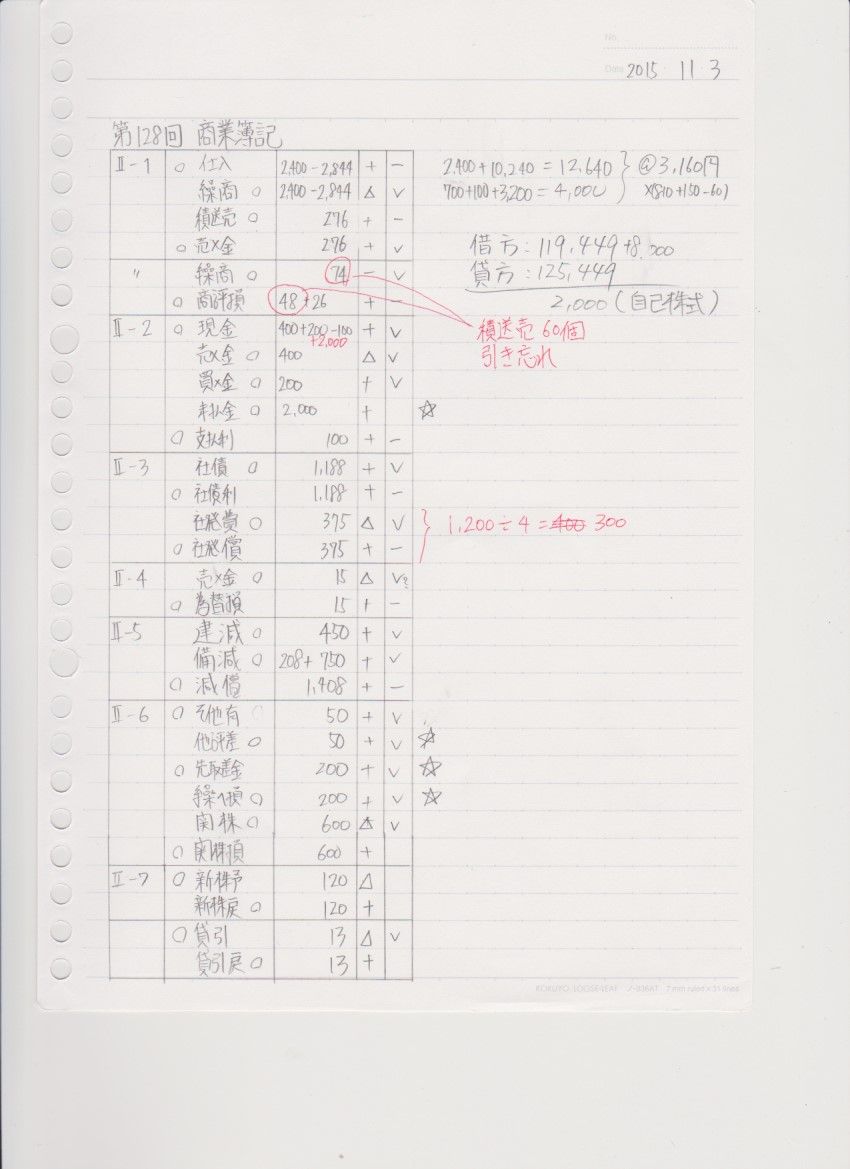 No.
Date 2015 11 3
第128回 商業簿記
Ⅱ-1 ○ 仕入 2,400-2,844 + − 2,400+10,240=12,640 } @3,160円
繰商 ○ 2,400-2,844 △ ✓ 700+100+3,200=4,000 ×(810+150-60)
積送売 ○ 276 + −
○ 売×金 276 + ✓ 借方:119,449+8,000
〃 繰商 ○ 74 − ✓ 貸方:125,449
○ 商評損 48+26 + − 2,000(自己株式)
Ⅱ-2 ○ 現金 400+200-100 + ✓ 積送売 60個
+2,000
売×金 ○ 400 △ ✓ 引き忘れ
買×金 ○ 200 + ✓
未払金 ○ 2,000 + ☆
○ 支払利 100 + −
Ⅱ-3 社債 ○ 1,188 + ✓
○ 社債利 1,188 + −
社発費 ○ 375 △ ✓ } 1,200÷4=400 300
○ 社発償 375 + −
Ⅱ-4 売×金 ○ 15 △ ✓?
○ 為替損 15 + −
Ⅱ-5 建減 ○ 450 + ✓
備減 ○ 208+750 + ✓
○ 減償 1,408 + −
Ⅱ-6 ○ その他有 50 + ✓
他評差 ○ 50 + ✓ ☆
○ 先取差金 200 + ✓ ☆
繰ヘ損 ○ 200 + ✓ ☆
関株 ○ 600 △ ✓
○ 関株損 600 +
Ⅱ-7 ○ 新株予 120 △
新株戻 ○ 120 +
○ 貸引 13 △ ✓
貸引戻 ○ 13 +
KOKUYO LOOSE-LEAF ノ-836AT 7 mm ruled×31 lines